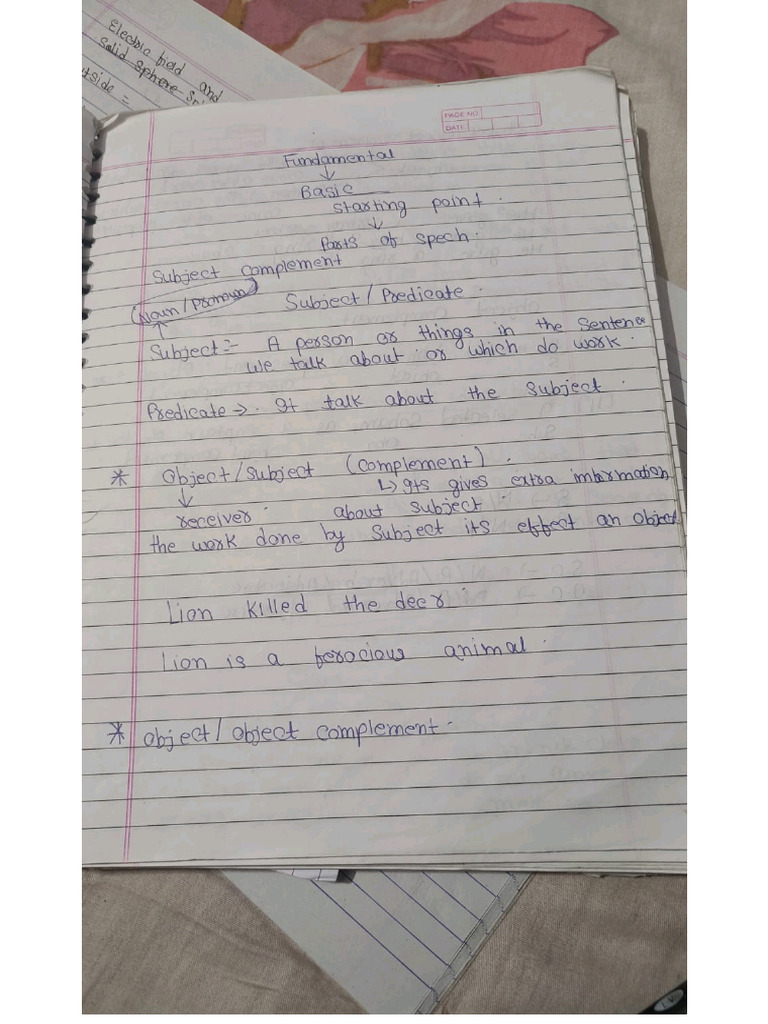 Electric field and
solid sphere
tside =
PAGE NO.
DATE
Fundamental
↓
Basic
starting point .
↓
Parts of spech .
Subject complement
Noun / Pronoun
Subject / Predicate .
Subject :- A person or things in the Sentence
we talk about or which do work .
Predicate → . It talk about the Subject .
* Object / Subject (complement) .
↓ ↳ Its gives extra imformation
receiver . about subject .
the work done by Subject its effect an object
Lion killed the deer .
Lion is a ferocious animal .
* object / object complement .